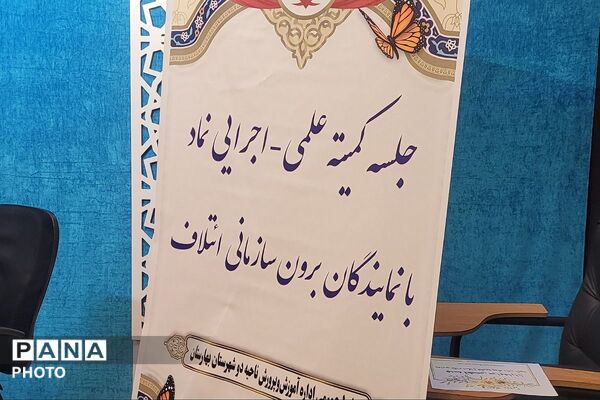 جلسه کمیته علمی-اجرایی نماد
با نمایندگان برون سازمانی ائتلاف
عمومی اداره آموزش و پرورش ناحیه دو شهرستان بهارستان
PANA
PHOTO